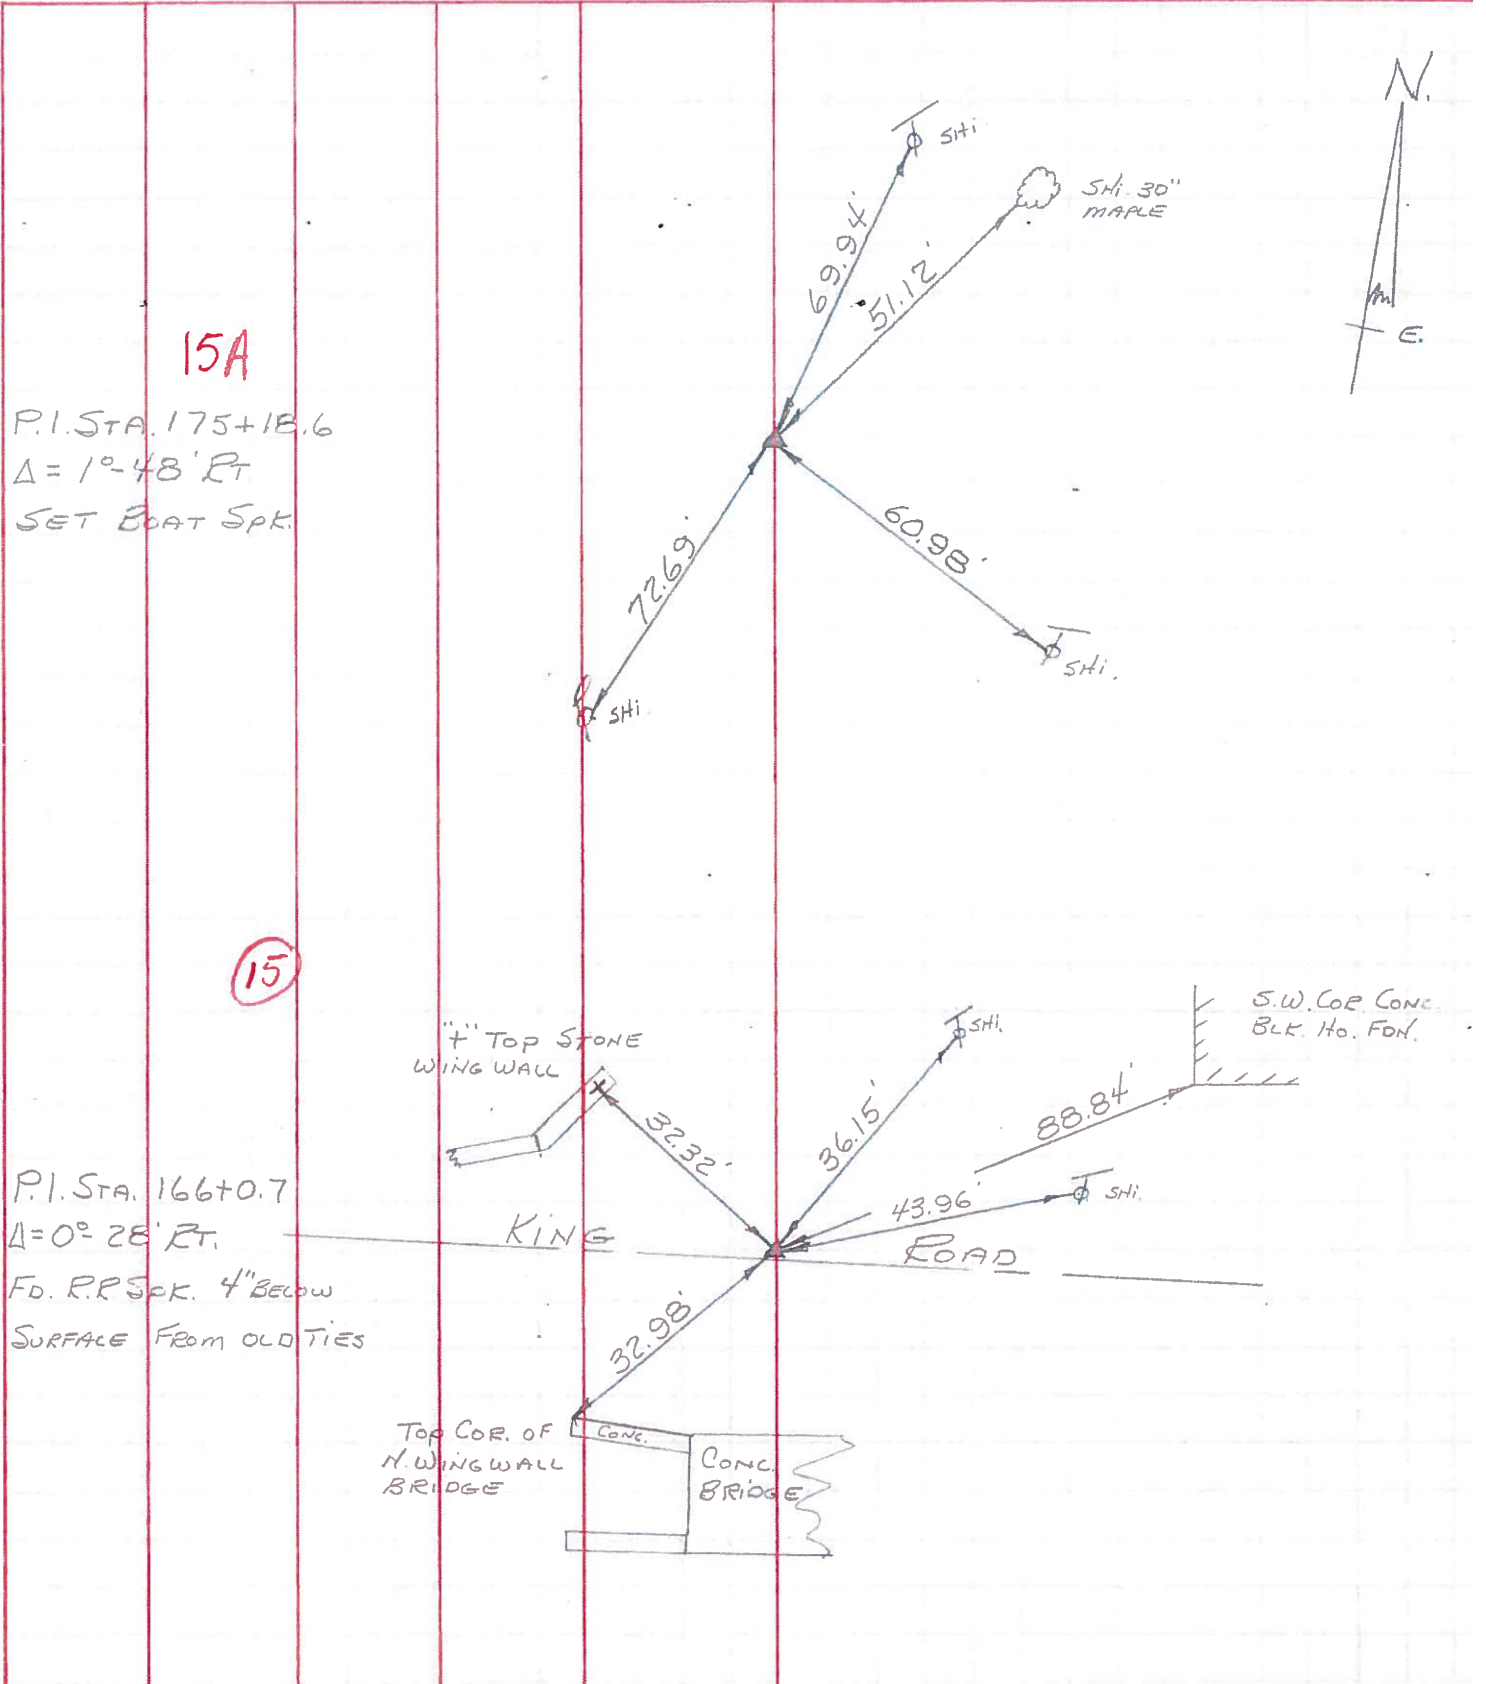 N.
SHi
SHi. 30"
MAPLE
69.94'
51.12'
E.
15A
P.I. STA. 175+18.6
Δ = 1°-48' RT
SET BOAT SPK.
60.98'
72.69'
SHi.
SHi
15
"+" TOP STONE
WING WALL
SHi.
S.W. COR. CONC.
BLK. HO. FDN.
32.32'
36.15'
88.84'
P.I. STA. 166+0.7
Δ=0°-28' RT.
43.96'
SHi.
KING ROAD
FD. R.R SPK. 4" BELOW
SURFACE FROM OLD TIES
32.98'
TOP COR. OF
N. WINGWALL
BRIDGE
CONC.
CONC.
BRIDGE